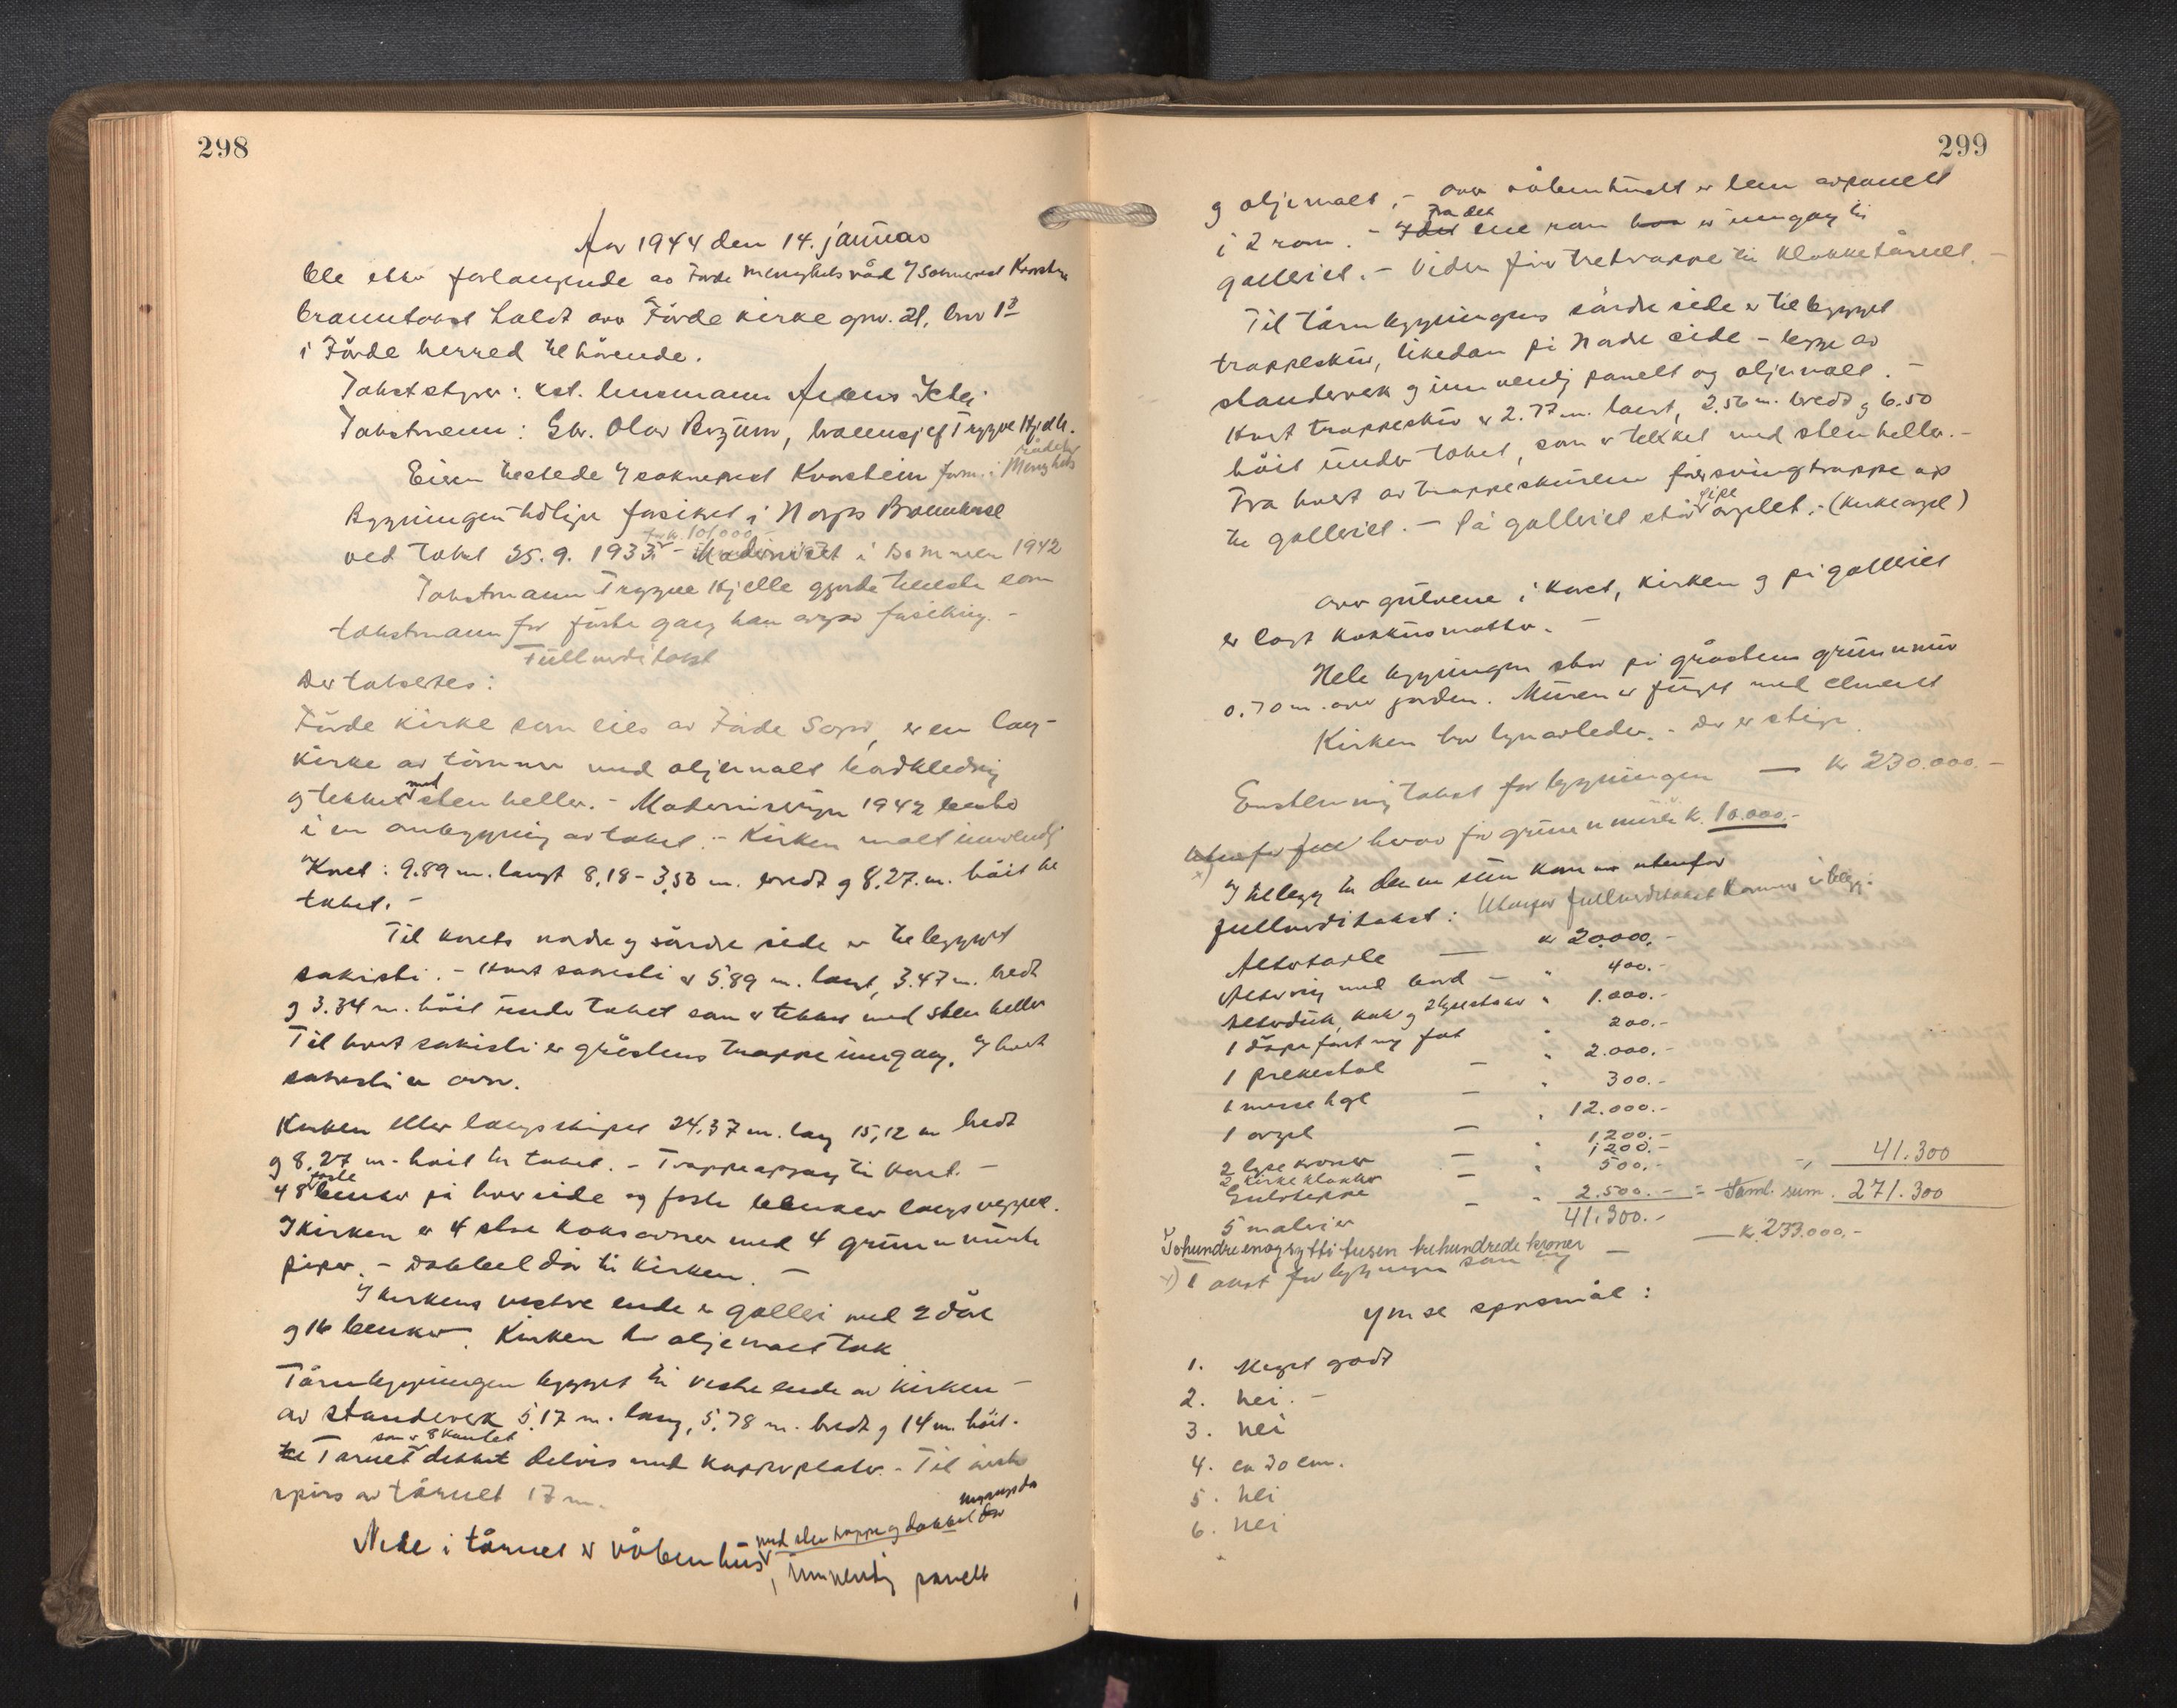 298
Aar 1944 den 14. januar
ble etter forlangende av Førde menighetsråd v/ sokneprest Kvarstein
branntakst holdt over Førde kirke gnr. 21, bnr 1
i Førde herred tilhørende.
Takststyrer: kst. lensmann
Takstmenn: Gbr. Olav Bergum, brannsjef Trygve Kjelle.
Eieren tilstede v/ sokneprest Kvarstein form. i Menighets
rådet
Bygningen tidligere forsikret i Norges Brannkasse
ved takst 25.9. 1933 - Modernisert i sommeren 1942
for kr. 101,000
Takstmann Trygve Kjelle gjorde teneste som
takstmann for første gang han avgav forsikring. -
Fullverditakst
Der takseres:
Førde kirke som eies av Førde Sogn, er en lang-
kirke av tømmer med oljemalt bordkledning
og tekket med stenheller. - Moderniseringen 1942 besto
i en ombygging av taket. - Kirken malt innvendig
Koret: 9.89 m. langt 8,18 - 3,56 m. bredt og 8.27. m. høit til
taket. -
Til korets nordre og søndre side er tilbygget
sakristi. - Hvert sakristi er 5.89 m. langt, 3.47 m. bredt
og 3.34 m. høit under taket som er tekket med stenheller
Til hvert sakristi er gråstens trappe inngang. I hvert
sakristi er ovn.
Kirken eller langskipet 24.37 m. lang 15,12 m bredt
og 8.27 m. høit til taket. - Trappeopgang til koret. -
48 faste benker på hver side og faste benker langs veggene.
I kirken er 4 store koksovner med 4 grunnmurte
piper. - Dobbel dør til kirken. -
I kirkens vestre ende er galleri med 2 dører
og 16 benker. Kirken har oljemalt tak
Tårnbygningen bygget til vestre ende av kirken -
av standerverk 5.17 m. lang, 5,78 m. bredt og 14 m. høit.
Tårnet som er 8 kantet dekket delvis med kopperplater. - Til øverste
spiss av tårnet 17 m.
Nede i tårnet er våbenhus med stentrappe og dobbel dør
inngangsdør
, innvendig panelt
299
og oljemalt. - Over våbenhuset er lem avpanelt
i 2 rom. - Fra det ene rom er inngang til
galleriet. - Videre går tretrappe til klokketårnet. -
Til tårnbygningens søndre side er tilbygget
trappeskur, likedan på nordre side - begge av
standerverk og innvendig panelt og oljemalt. -
Hvert trappeskur er 2.77 m. langt, 2,56 m. bredt og 6.50
høit under taket, som er tekket med stenheller. -
Fra hvert av trappeskurene går svingtrappe op
til galleriet. - På galleriet står pipeorgelet. - (kirkeorgel)
Over gulvene i koret, kirken og på galleriet
er lagt kokusmatter. -
Hele bygningen står på gråstens grunnmur
0.70 m. over jorden. Muren er fuget med cement
Kirken har lynavleder. - Der er stige.
Enstemmig takst for bygningen — kr 230.000.-
hvorav for grunnmuren kr. 10.000.-
x)
I tillegg til denne sum kommer utenfor
fullverditakst: Utenfor fullverditakst kommer i tillegg:
Altertavle — kr 20.000.-
Altering med bord — " 400.-
Alterduk, kalk og 2 lysestaker " 1.000.-
1 døpefont og fat " 200.-
1 prekestol — " 2.000.-
1 messehagel — " 300.-
1 orgel — " 12.000.-
2 lysekroner — " 1,200.-
2 kirkeklokker — " 1,200.-
Gulvteppe — " 500.- -,, 41.300
5 malerier - " 2.500.- = Saml. sum. 271.300
41.300.-
Tohundreenogsytti tusen trehundrede kroner
x) takst for bygningen som — kr. 233.000.-
Ymse spørsmål:
1. Meget godt
2. Nei. -
3. Nei
4. ca 30 cm.
5. Nei
6. Nei